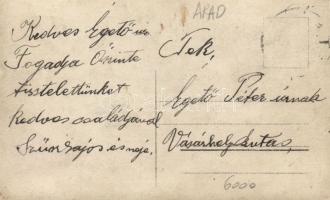 APAD
Kedves Egető úr
Fogadja Őszinte
tiszteletünket
kedves családjával
Szűcs Lajos és neje.
Tek,
Egető Péter úrnak
Vásárhelykutas,
6000